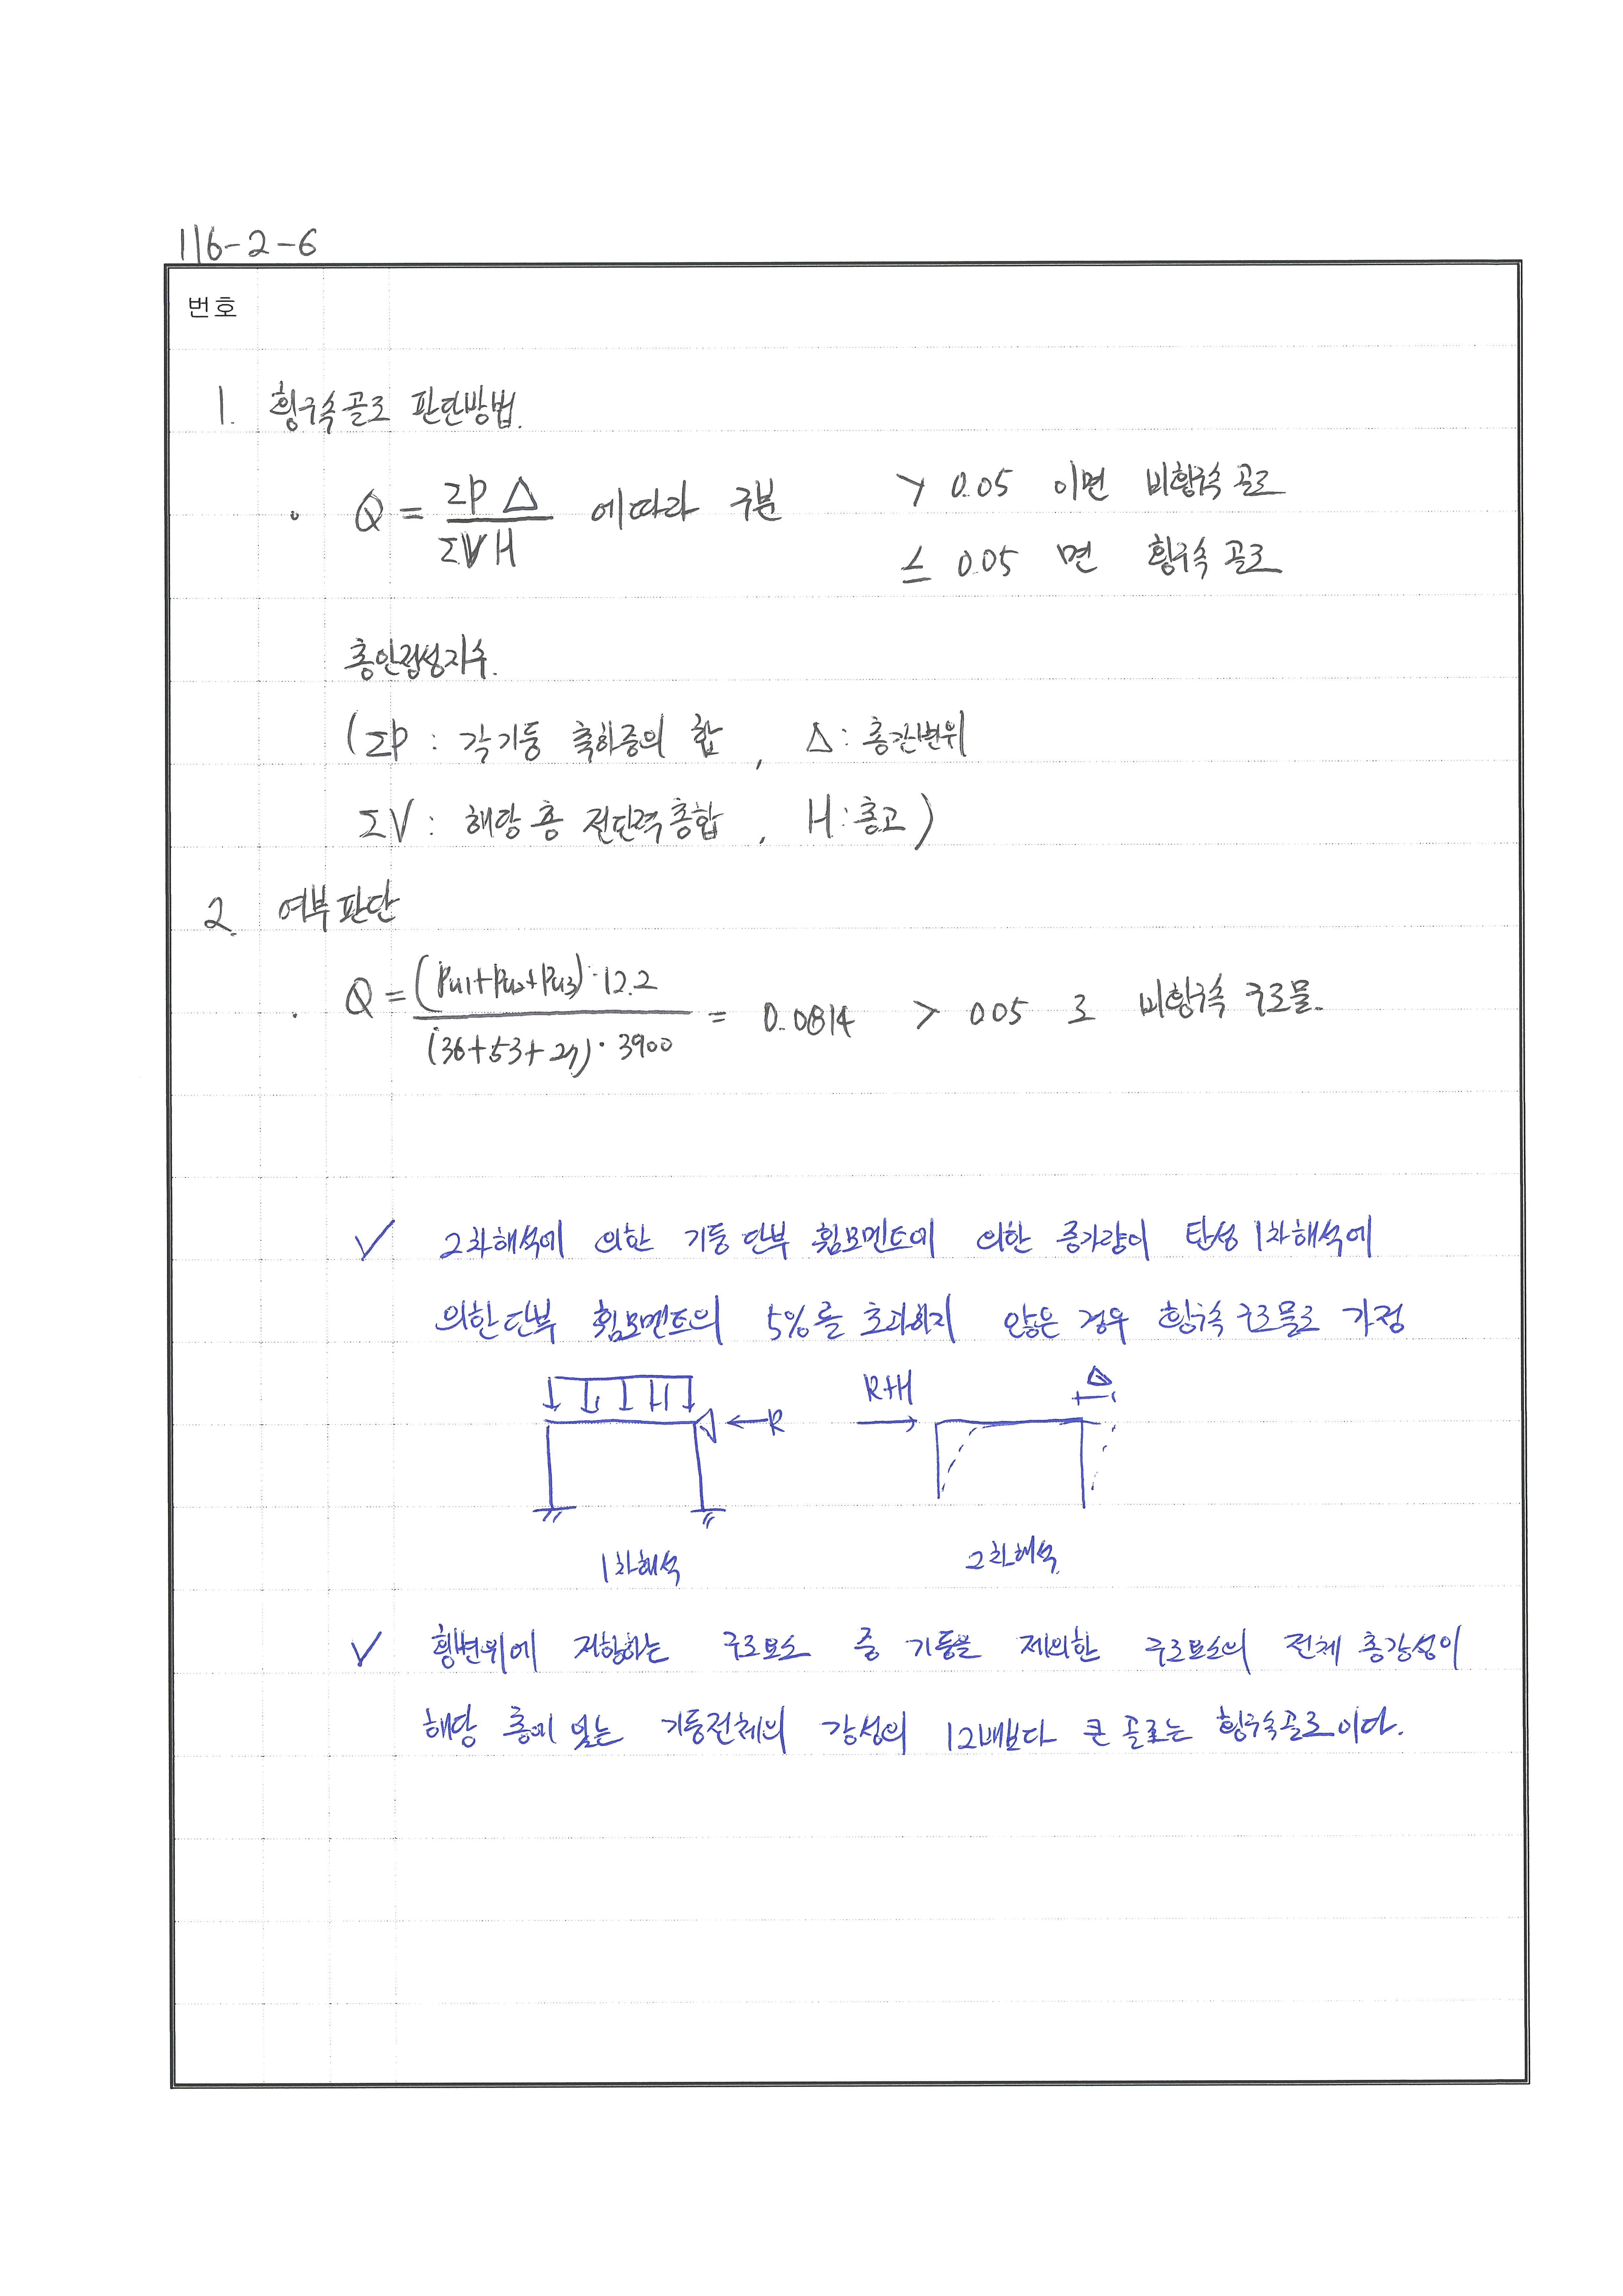 116-2-6
번호
1. 횡구속골조 판단방법.
· Q = ΣPΔ / ΣVH 에따라 구분 > 0.05 이면 비횡구속 골조
≤ 0.05 면 횡구속 골조
층안정성지수.
(ΣP : 각기둥 축하중의 합 , Δ : 층간변위
ΣV : 해당 층 전단력총합 , H : 층고)
2. 여부판단
· Q = (Pu1+Pu2+Pu3)·12.2 / (36+53+27)·3900 = 0.0814 > 0.05 로 비횡구속 구조물.
✓ 2차해석에 의한 기둥단부 휨모멘트에 의한 증가량이 탄성 1차해석에
의한단부 휨모멘트의 5%를 초과하지 않은 경우 횡구속 구조물로 가정
R R+H Δ
1차해석 2차해석.
✓ 횡변위에 저항하는 구조요소 중 기둥을 제외한 구조요소의 전체 층강성이
해당 층에 있는 기둥전체의 강성의 12배보다 큰 골조는 횡구속골조이다.